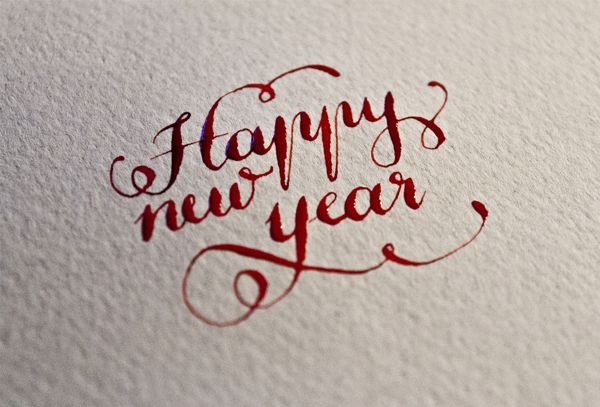 Happy
new year